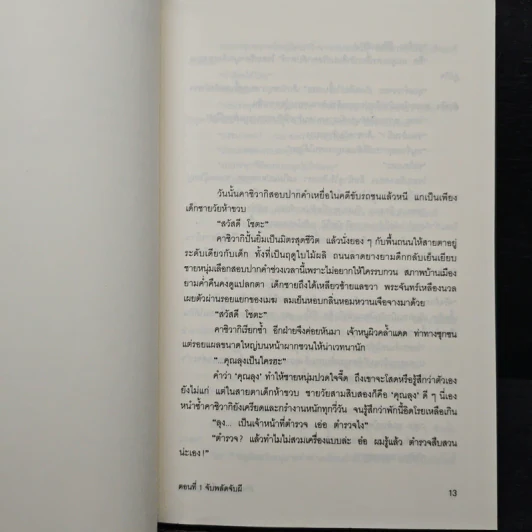 วันนั้นคาชิวากิสอบปากคำเหยื่อในคดีขับรถชนแล้วหนี แกเป็นเพียง
เด็กชายวัยห้าขวบ
"สวัสดี โชตะ"
คาชิวากิปั้นยิ้มเป็นมิตรสุดชีวิต แล้วนั่งยอง ๆ กับพื้นถนนให้สายตาอยู่
ระดับเดียวกับเด็ก ทั้งที่เป็นฤดูใบไม้ผลิ ถนนลาดยางยามดึกกลับเย็นเยียบ
ชายหนุ่มเลือกสอบปากคำช่วงเวลานี้เพราะไม่อยากให้ใครรบกวน สภาพบ้านเมือง
ยามค่ำคืนคงดูแปลกตา เด็กชายถึงได้เหลียวซ้ายแลขวา พระจันทร์เหลืองนวล
เผยตัวผ่านรอยแยกของเมฆ ลมเย็นหอบกลิ่นหอมหวานเจือจางมาด้วย
"สวัสดี โชตะ"
คาชิวากิเรียกซ้ำ อีกฝ่ายจึงค่อยหันมา เจ้าหนูผิวคล้ำแดด ท่าทางซุกซน
แต่รอยแผลขนาดใหญ่บนหน้าผากชวนให้น่าเวทนานัก
"...คุณลุงเป็นใครฮะ"
คำว่า 'คุณลุง' ทำให้ชายหนุ่มปวดใจจี๊ด ถึงเขาจะโสดหรือรู้สึกว่าตัวเอง
ยังไม่แก่ แต่ในสายตาเด็กห้าขวบ ชายวัยสามสิบสองก็คือ 'คุณลุง' ดี ๆ นี่เอง
หนำซ้ำคาชิวากิยังเครียดและกรำงานหนักทุกวี่วัน จนรู้สึกว่าพักนี้อิดโรยเหลือเกิน
"ลุง... เป็นเจ้าหน้าที่ตำรวจ เอ่อ ตำรวจไง"
"ตำรวจ? แล้วทำไมไม่สวมเครื่องแบบล่ะ อ๋อ ผมรู้แล้ว ตำรวจสืบสวน
น่ะเอง!"
ตอนที่ 1 จับพลัดจับผี
13